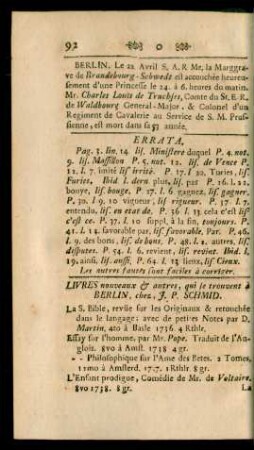 92
BERLIN. Le 22 Avril S. A. R Me, la Marggra-
ve de Brandebourg-Schwedt est accouchée heureu-
sement d'une Princesse le 24. à 6. heures du matin.
Mr. Charles Louis de Truchses, Comte du St. E. R.
de Waldbourg General-Major, & Colonel d'un
Regiment de Cavalerie au Service de S. M. Prus-
sienne, est mort dans sa 53 année.
ERRATA,
Pag. 3. lin. 14. lis. Ministere duquel P. 4. not.
9. lis. Massillon P. 5. not. 12. lis. de Vence P.
12. l. 7. imité lis irrité. P. 17. l 20. Turies, lis.
Furies, Ibid l. dern plus, lis pas P. 16. l. 22.
bouye, lis. bouge. P. 17. l. 6. gagnent, lis. gagner.
P. 30. l 9, 10 vigueur, lis rigueur. P. 37. l. 7.
entendu, lis. en etat de, P. 36 l. 15 cela c'est lis
c'est ce. P. 37. l. 10 suppl. à la fin, toujours. P.
41. l. 14. favorable par, lis. favorable. Par. P. 46.
l. 9. des bons, lis. de bons. P. 48. l. 2. autres, lis.
disputes. P. 54. l. 6. revient, lis. revint. Ibid. l.
19. ainsi, lis. aussi. P. 64. l. 13 liens, lis. Cieux.
Les autres fautes sont faciles à corriger.
LIVRES nouveaux & autres, qui se trouvent à
BERLIN, chez, J. P. SCHMID.
La S. Bible, revûe sur les Originaux & retouchée
dans le langage: avec de petites Notes par D.
Martin, 4to à Basle 1736. 4 Rthlr.
Essay sur l'homme. par Mr. Pope. Traduit de l'An-
glois. 8vo à Amst. 1738 4 gr.
- - Philosophique sur l'Ame des Betes. 2 Tomes,
12mo à Amsterd. 17.7. 1 Rthlr 8 gr.
L'Enfant prodigue, Comédie de Mr. de Voltaire.
8vo 1738. 8 gr.
La